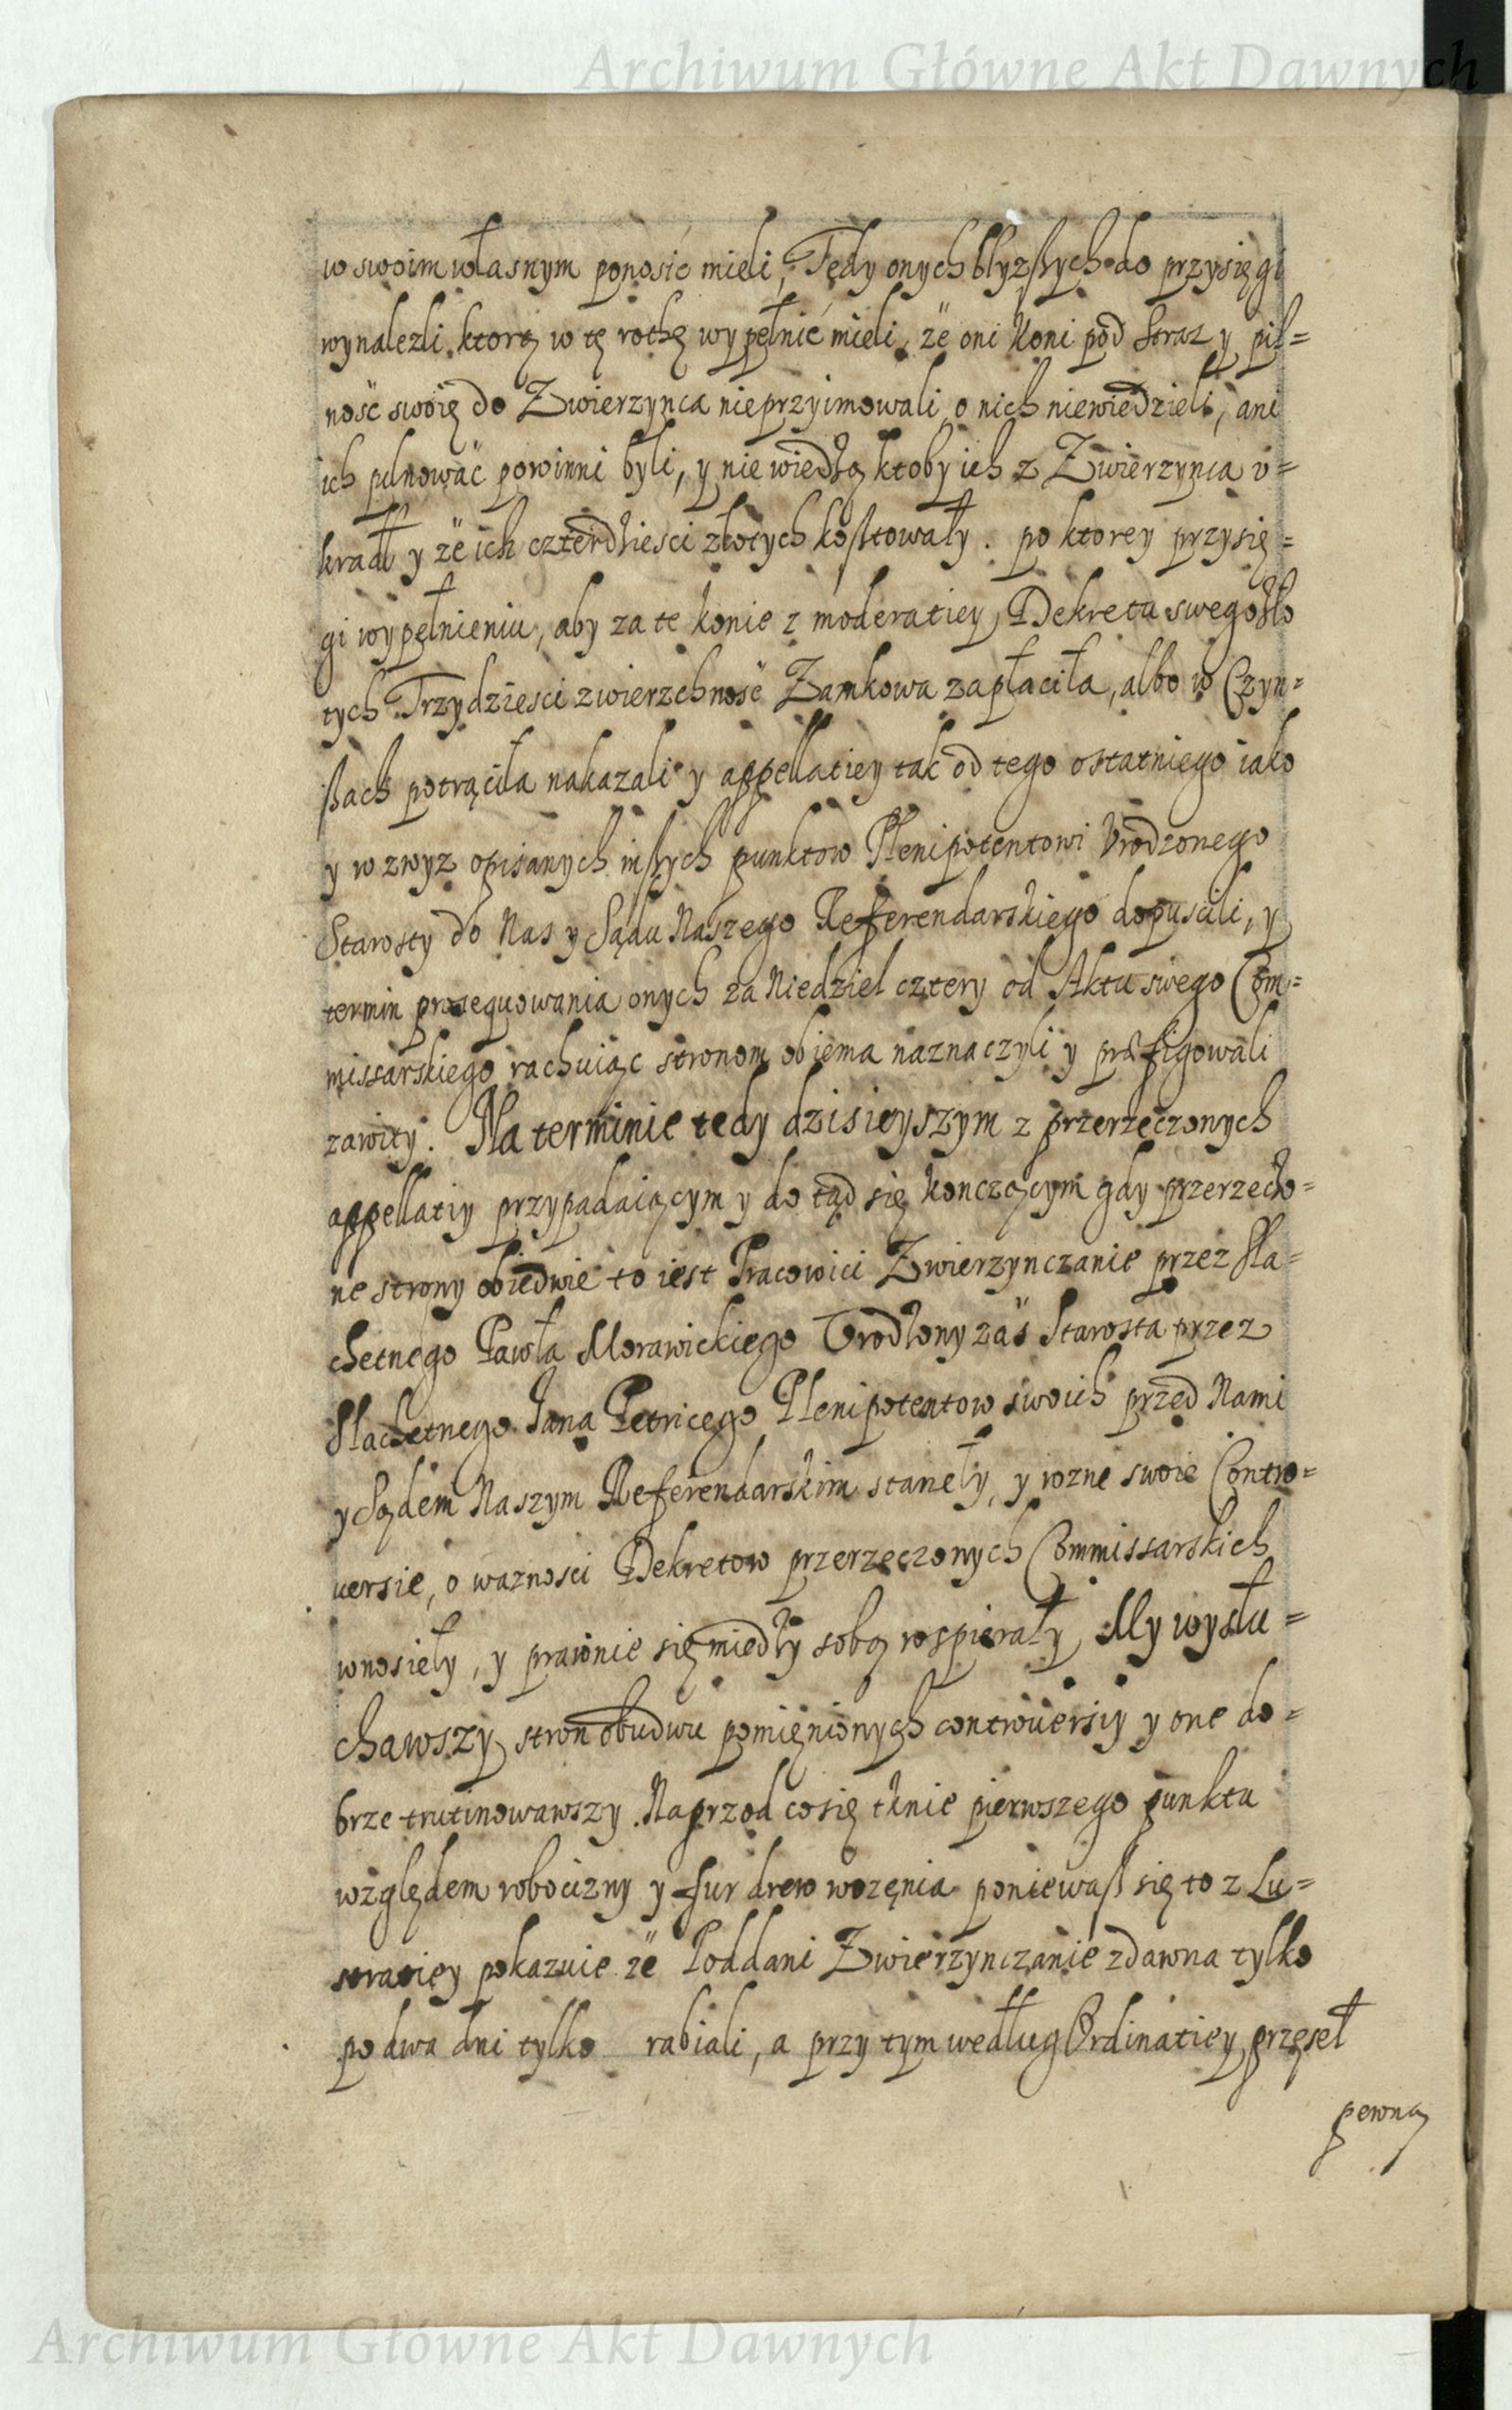 Archiwum Główne Akt Dawnych
w swoim własnym ponosić mieli, Tedy onych blyzszych do przysięgi
wynalezli, ktorą w tę rothę wypełnić mieli, że oni koni pod straz y pil=
ność swoię do Zwierzynca nieprzyimowali, o nich niewiedzieli, ani
ich pilnować powinni byli, y nie wiedzą ktoby ich z Zwierzynca v=
kradł y że ich czterdziesci złotych kosztowały. po ktorey przysię=
gi wypełnieniu, aby za te konie z moderatiey Dekretu swego zło
tych Trzydziesci zwierzchność Zamkowa zapłaciła, albo w Czyn=
szach potrąciła nakazali y appellatiey tak od tego ostatniego iako
y w zwyz opisanych inszych punktow Plenipotentowi Vrodzonego
Starosty do Nas y Sądu Naszego Referendarskiego dopuscili, y
termin prosequowania onych za Niedziel cztery od Aktu swego Com=
missarskiego rachuiąc stronom obiema naznaczyli y præfigowali
zawity. Na terminie tedy dzisieyszym z przerzeczonych
appellatiy przypadaiącym y do tąd się konczącym gdy przerzeczo=
ne strony obiedwie to iest Pracowici Zwierzynczanie przez Sla=
chetnego Pawła Morawickiego Vrodzony zaś Starosta przez
Slachetnego Jana Petricego Plenipotentow swoich przed Nami
y Sądem Naszym Referendarskim staneły, y rozne swoie Contro=
uersie, o waznosci Dekretow przerzeczonych Commissarskich
wnosieły, y prawnie się miedzy sobą rospierały, My wysłu=
chawszy stron obudwu pomienionych controuersiy y one do=
brze trutinowawszy. Naprzod co się tknie pierwszego punktu
względem robocizny y fur drew wozenia poniewasz się to z Lu=
stratiey pokazuie że Poddani Zwierzynczanie zdawna tylko
po dwa dni tylko rabiali, a przy tym według Ordinatiey przeseł
pewną
Archiwum Główne Akt Dawnych